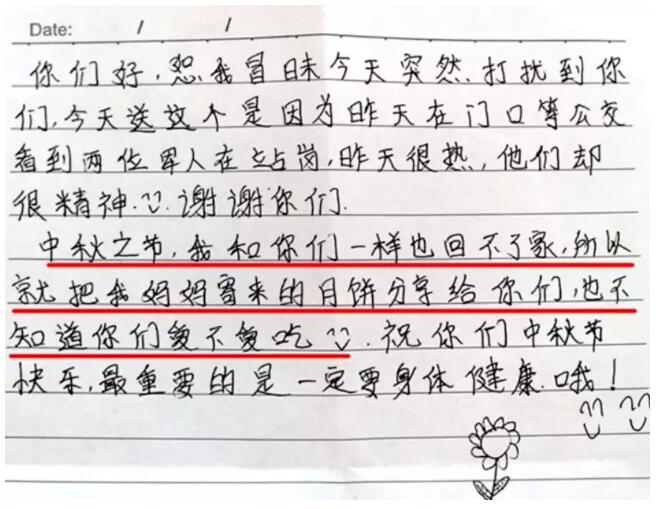 Date: / /
你们好，恕我冒昧今天突然打扰到你
们，今天送这个是因为昨天在门口等公交
看到两位军人在站岗，昨天很热，他们却
很精神。谢谢你们.
中秋之节，我和你们一样也回不了家，所以
就把我妈妈寄来的月饼分享给你们，也不
知道你们爱不爱吃 祝你们中秋节
快乐，最重要的是一定要身体健康哦！